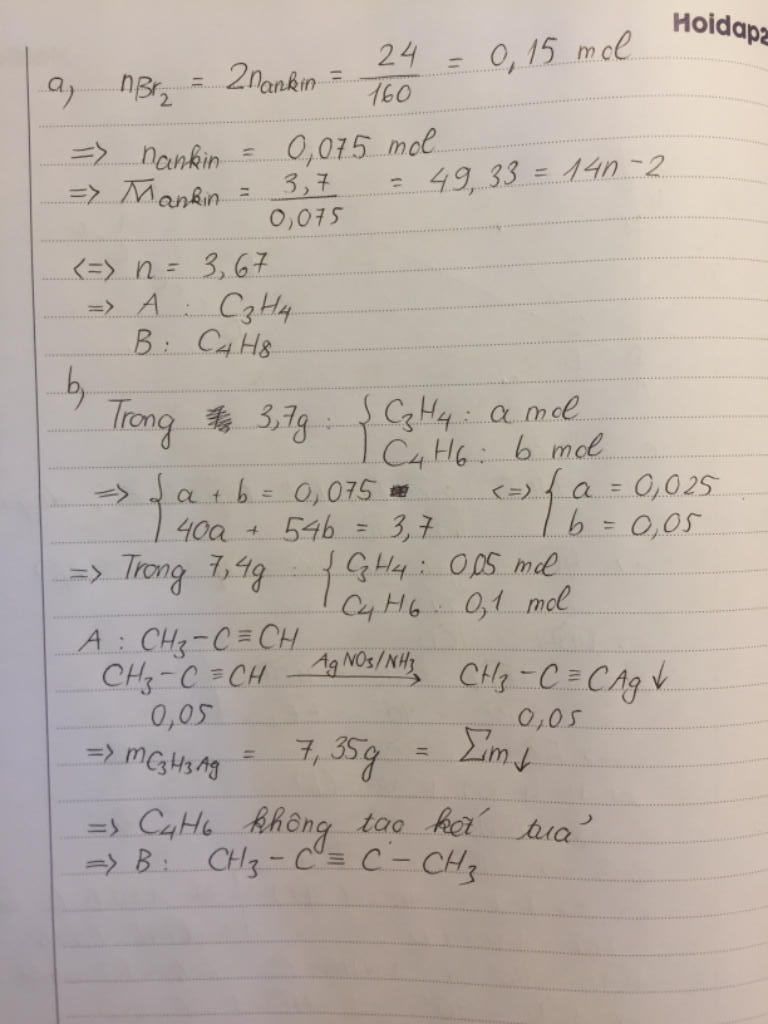 Hoidap2
a, nBr₂ = 2nankin = 24/160 = 0,15 mol
=> nankin = 0,075 mol
=> M̅ankin = 3,7/0,075 = 49,33 = 14n - 2
<=> n = 3,67
=> A : C₃H₄
B : C₄H₈
b,
Trong 3,7g : { C₃H₄ : a mol
C₄H₆ : b mol
=> { a + b = 0,075 <=> { a = 0,025
40a + 54b = 3,7 b = 0,05
=> Trong 7,4g : { C₃H₄ : 0,05 mol
C₄H₆ : 0,1 mol
A : CH₃ - C ≡ CH
CH₃ - C ≡ CH AgNO₃/NH₃ → CH₃ - C ≡ CAg ↓
0,05 0,05
=> mC₃H₃Ag = 7,35g = Σm↓
=> C₄H₆ không tạo kết tủa
=> B : CH₃ - C ≡ C - CH₃